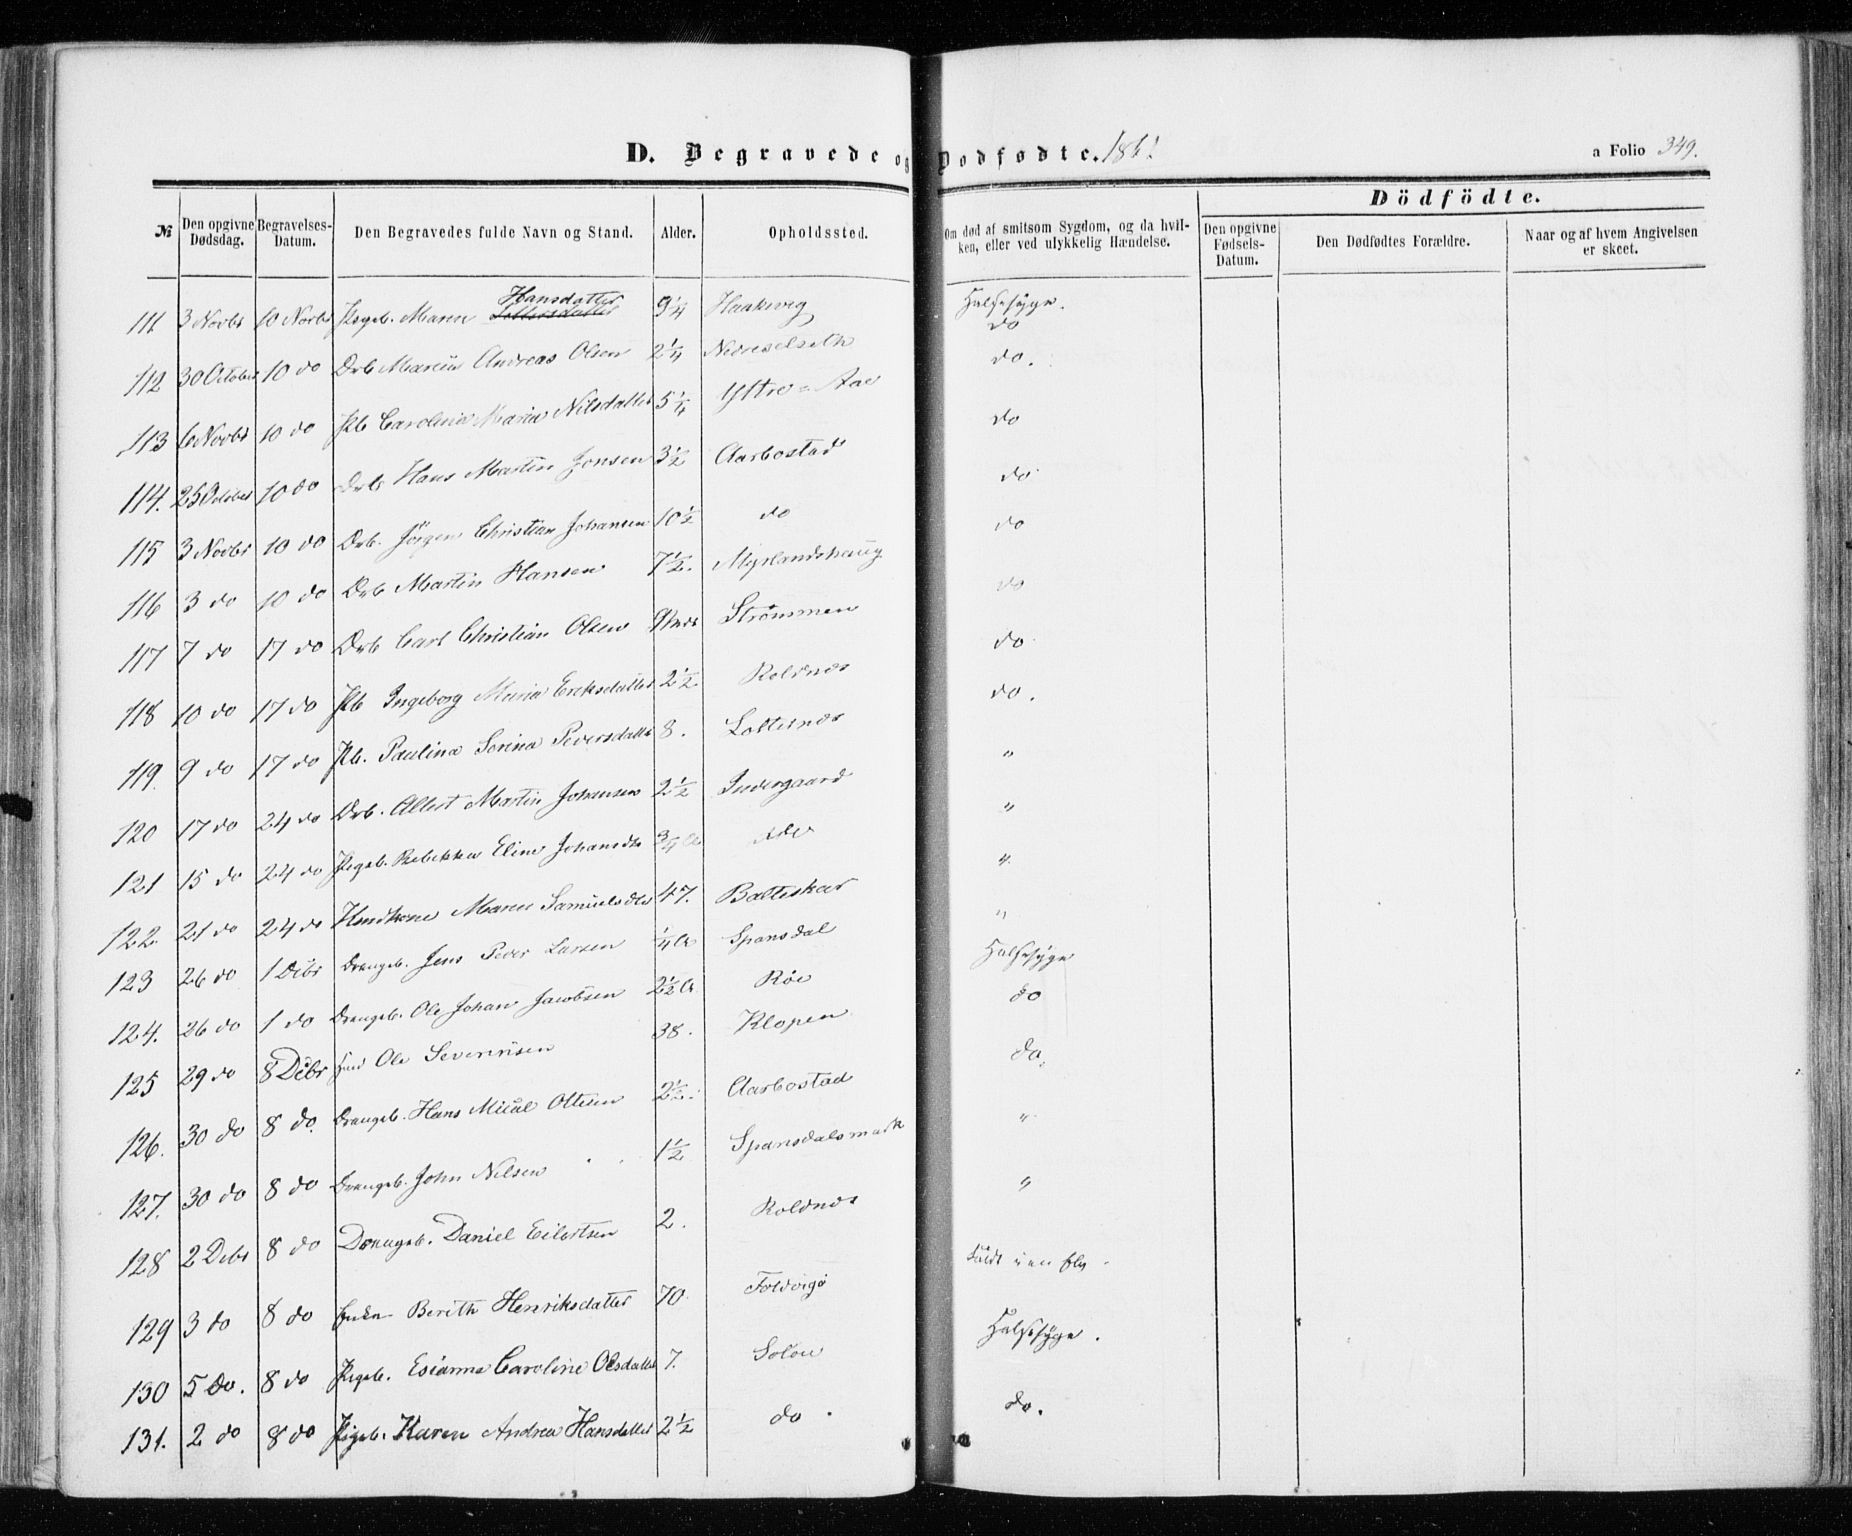 D. Begravede og Dødfødte. 1861
a Folio 349.
Dödfödte.
№ Den opgivne Dødsdag. Begravelses-Datum. Den Begravedes fulde Navn og Stand. Alder. Opholdssted. Om død af smitsom Sygdom, og da hvilken, eller ved ulykkelig Hændelse. Den opgivne Fødsels-Datum. Den Dødfødtes Forældre. Naar og af hvem Angivelsen er skeet.
111. 3 Novbr 10 Novbr Pigeb. Maren Hansdatter 9¼ Haakvig Halssyge.
112 30 October 10 do Drb Marcus Andreas Olsen 2¼ Nedreselseth do
113 6 Novbr 10 do Pb Carolina Maria Nilsdatter 5¼ Yttre-Aae do.
114. 25 October 10 do Drb Hans Martin Jonsen 3½ Aarbostad do
115 3 Novbr 10 do Drb. Jörgen Christian Johansen 10½ do do
116 3 do 10 do Drb Martin Hansen 7½. Myrlandshaug do
117 7 do 17 do Drb Carl Christian Olsen Strømmen do
118 10 do 17 do Pb Ingeborg Maria Eriksdatter 2½ Roldnes do
119. 9 do 17 do Pb. Paulina Serina Pedersdatter 8. Lotternes do.
120 17 do 24 do Drb. Albert Martin Johansen 2½ Indergaard "
121 15 do 24 do Pigeb. Rebekka Eline Johansdr ¾ "
122. 21 do 24 do Huuskone Maren Samuelsdtr 47. Balteskar "
123 26 do 1 Dcbr Drengeb. Jens Peder Larsen ¼ Spansdal "
124. 26 do 1 do Drengeb. Ole Johan Jacobsen 2½ Røe Halssyge
125 29 do 8 Dcbr Ole Severinsen 38. Klopen do
126. 30 do 8 do. Drengeb. Hans Mical Ottesen 2½. Aarbostad do.
127. 30 do 8 do Drengeb. John Nilsen 1½ Spansdalsmark "
128 2 Dcbr 8 do Drengeb. Daniel Eilertsen 2. Roldnes "
129 3 do 8 do Enke Berith Henriksdatter 70. Foldvig
130 5 do. 8 do Pigeb. Esianna Caroline Olsdatter 7. Soløu Halssyge.
131. 2 do 8 do Pigeb. Karen Andrea Hansdatter 2½ do. do.